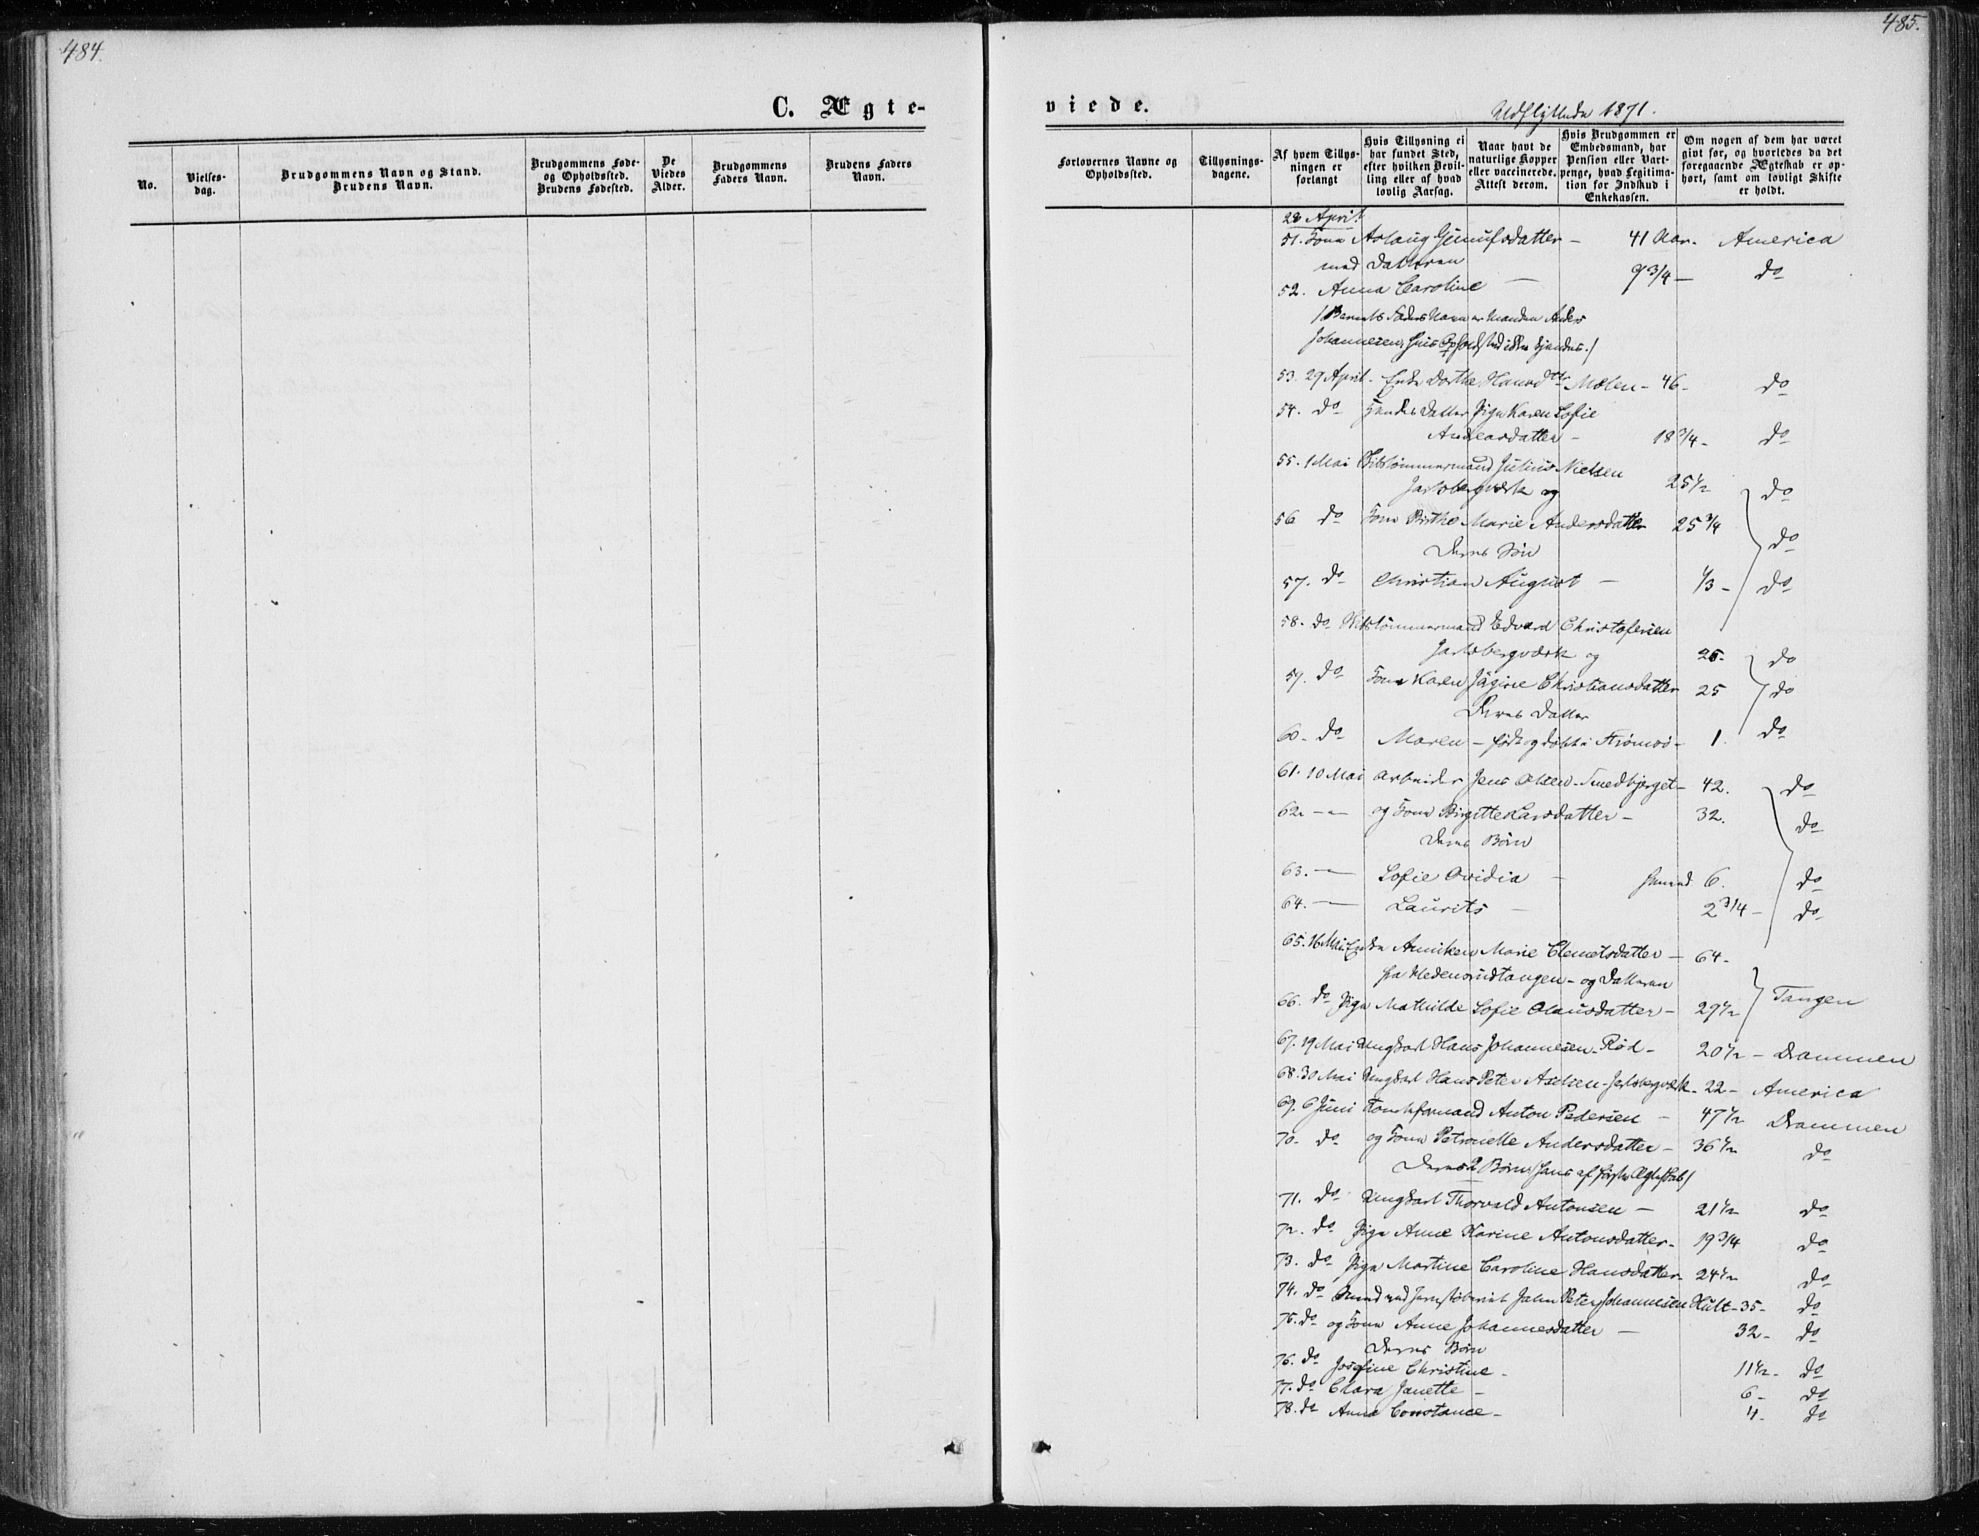 484.
485.
C. Ægte-
viede.
Udflyttede 1871.
No.
Vielses-
dag.
Brudgommens Navn og Stand.
Brudens Navn.
Brudgommens Føde-
og Opholdssted.
Brudens Fødested.
De
Viedes
Alder.
Brudgommens
Faders Navn.
Brudens Faders
Navn.
Forlovernes Navne og
Opholdssted.
Tillysnings-
dagene.
Af hvem Tillys-
ningen er
forlangt
Hvis Tillysning ei
har fundet Sted,
efter hvilken Bevil-
ling eller af hvad
lovlig Aarsag.
Naar havt de
naturlige Kopper
eller vaccinerede.
Attest derom.
Hvis Brudgommen er
Embedsmand, har
Pension eller Vart-
penge, hvad Legitima-
tion for Indskud i
Enkekassen.
Om nogen af dem har været
givt før, og hvorledes da det
foregaaende Ægteskab er op-
hørt, samt om lovligt Skifte
er holdt.
28 April
51. Kone Aslaug Gunufsdatter - 41 Aar. America
med Datteren
52. Anna Caroline - 9 3/4 - do
/Barnets Faders Navn er Manden Anders
Johannesen, hvis Opholdsted ikke kjendes./
53. 29 April - Enke Dorthe Hansdtr Mølen - 46 - do
54. do hendes Datter Pige Karen Sofie
Andersdatter - 18 3/4 - do
55. 1 Mai Skibstømmermand Julius Nielsen
Jarlsbergværk og 25 1/2 do
56 do Kone Birthe Marie Andersdatter 25 3/4 do
Deres Søn
57. do Christian August - 1/3 - do
58. do Skibstømmermand Edvard Christofersen
Jarlsbergværk og 26. do
59. do Kone Karen Jägine Christiansdatter 25 do
Deres Datter
60. do Maren - født og døbt i Strømsø - 1. do
61. 10 Mai Arbeider Jens Olsen - Smedbjerget - 42. do
62 - - og Kone Birgitte Larsdatter - 32. do
Deres Børn
63. - Sofie Ovidia - 6. do
64. - Laurits - 2 3/4 - do
65. 16 Mai Enke Anniken Marie Clemetsdatter - 64 -
fra Hedensrudtangen - og Datteren
66. do Pige Mathilde Sofie Olausdatter - 29 1/2 Tangen
67. 19 Mai Ungkarl Hans Johannesen - Rød - 20 1/2 - Drammen
68. 30 Mai Ungkarl Hans Peter Axelsen - Jarlsbergværk - 22 - America
69. 6 Juni Anton Pedersen - 47 1/2 Drammen
70. do og Kone Petronelle Andersdatter - 36 1/2 do
Deres 2 Børn /hans af første Ægteskab/
71. do Ungkarl Thorvald Antonsen - 21 1/2 do
72. do Pige Anne Karine Antonsdatter - 19 3/4 do
73. do Pige Martine Caroline Hansdatter - 24 1/2 do
74. do Peter Johannesen Hült - 35 - do
75. do og Kone Anne Johannesdatter - 32 - do
Deres Børn
76. do Josefine Christine - 11 1/2 - do
77. do Clara Janette - 6 - do
78. do Anna Constance - 4. do